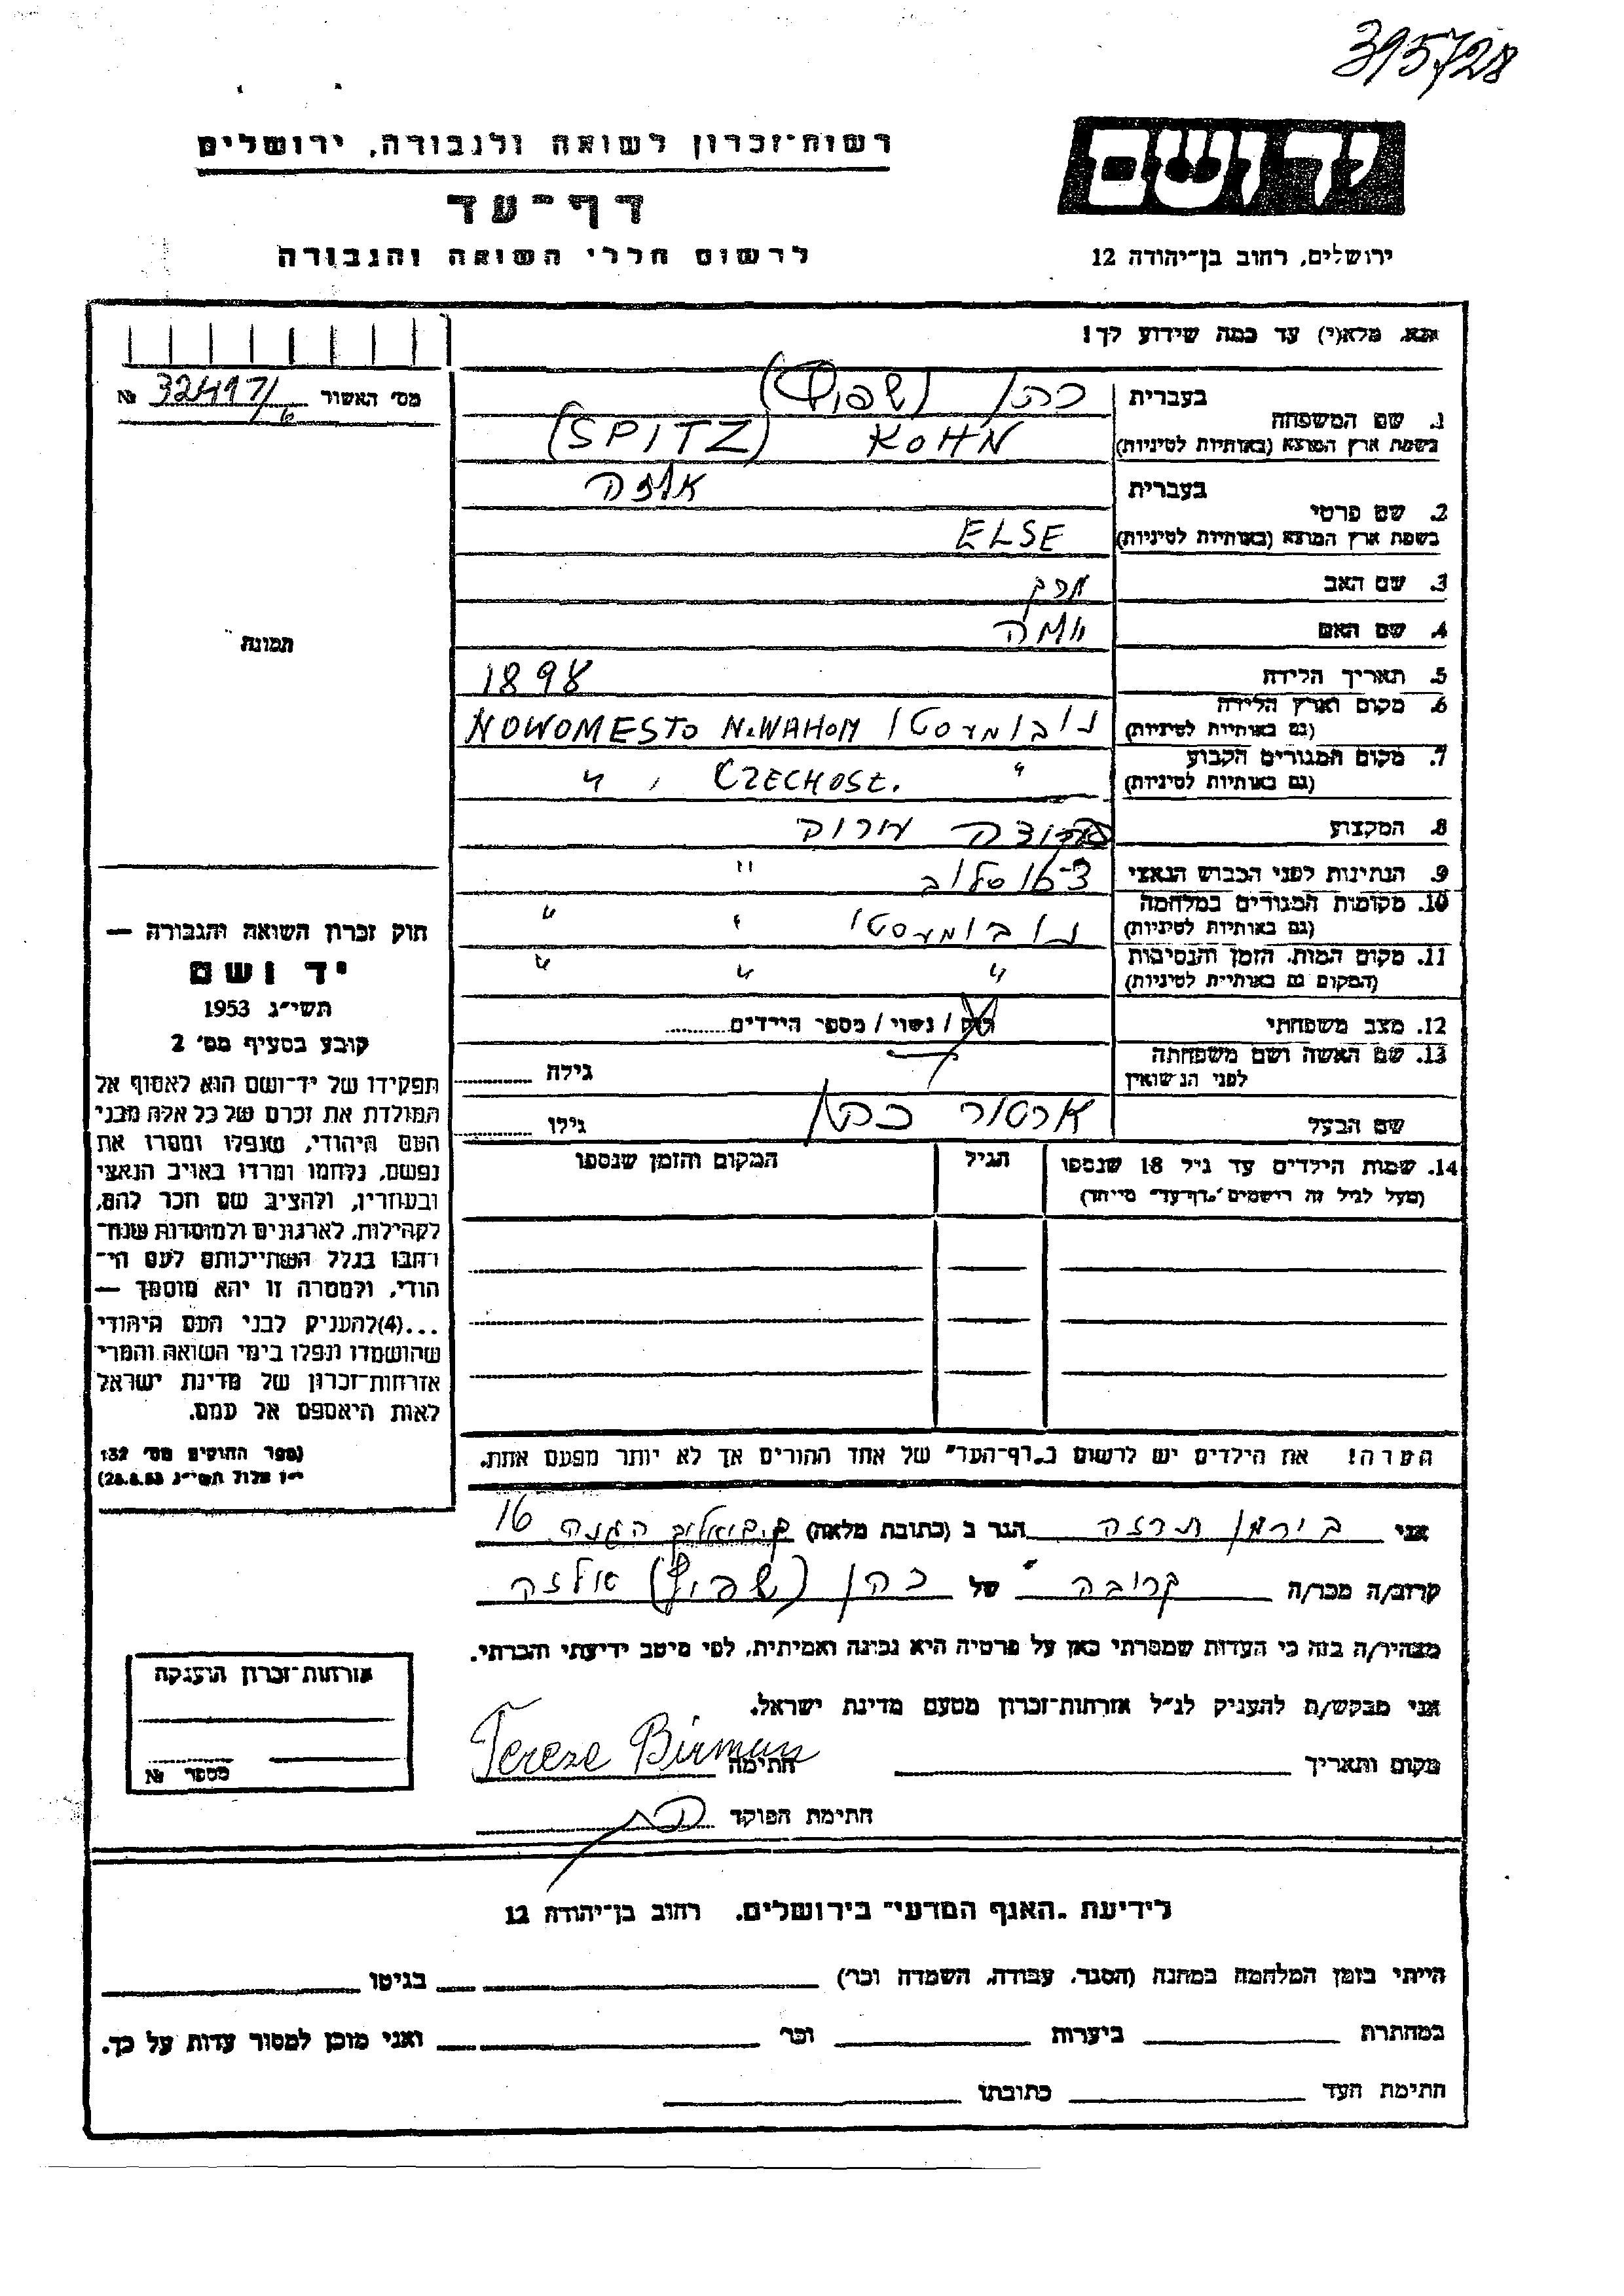 395728
יד ושם
ירושלים, רחוב בן־יהודה 12
רשות־זכרון לשואה ולגבורה, ירושלים
דף־עד
לרשום חללי השואה והגבורה
אנא, מלא(י) עד כמה שידוע לך!
מס׳ האשור 32417/6 №
תמונה
1. שם המשפחה
בעברית כהן (שפיץ)
בשפת ארץ המוצא (באותיות לטיניות) KOHN (SPITZ)
2. שם פרטי
בעברית אלזה
בשפת ארץ המוצא (באותיות לטיניות) ELSE
3. שם האב
4. שם האם
5. תאריך הלידה 1898
6. מקום וארץ הלידה
(גם באותיות לטיניות) נובומסטו NOWOMESTO N.WAHOM
7. מקום המגורים הקבוע
(גם באותיות לטיניות) " CZECHOSL. , "
8. המקצוע
9. הנתינות לפני הכבוש הנאצי צ׳כוסלוב "
10. מקומות המגורים במלחמה
(גם באותיות לטיניות) נובומסטו " "
11. מקום המות, הזמן והנסיבות
(המקום גם באותיות לטיניות) " " "
12. מצב משפחתי רווק / נשוי / מספר הילדים
13. שם האשה ושם משפחתה
לפני הנשואין גילה
שם הבעל ארטור כהן גילו
14. שמות הילדים עד גיל 18 שנספו הגיל המקום והזמן שנספו
(מעל לגיל זה רושמים ב„דף־עד” מיוחד)
חוק זכרון השואה והגבורה —
יד ושם
תשי״ג 1953
קובע בסעיף מס׳ 2
תפקידו של יד־ושם הוא לאסוף אל
המולדת את זכרם של כל אלה מבני
העם היהודי, שנפלו ומסרו את
נפשם, נלחמו ומרדו באויב הנאצי
ובעוזריו, ולהציב שם וזכר להם,
לקהילות, לארגונים ולמוסדות שנח־
רבו בגלל השתייכותם לעם הי־
הודי, ולמטרה זו יהא מוסמך —
...(4)להעניק לבני העם היהודי
שהושמדו ונפלו בימי השואה והמרי
אזרחות־זכרון של מדינת ישראל
לאות היאספם אל עמם.
(ספר החוקים מס׳ 132
י״ז אלול תשי״ג 28.8.53)
הערה! את הילדים יש לרשום ב„דף־העד” של אחד ההורים אך לא יותר מפעם אחת.
אני בירמן תרזה הגר ב (כתובת מלאה) ק. ביאליק הגנה 16
קרוב/ה מכר/ה קרובה של כהן (שפיץ) אלזה
מצהיר/ה בזה כי העדות שמסרתי כאן על פרטיה היא נכונה ואמיתית, לפי מיטב ידיעתי והכרתי.
אני מבקש/ת להעניק לנ״ל אזרחות־זכרון מטעם מדינת ישראל.
מקום ותאריך חתימה Tereze Birman
חתימת הפוקד
אזרחות־זכרון הוענקה
מספר №
לידיעת „האגף המדעי” בירושלים, רחוב בן־יהודה 12
הייתי בזמן המלחמה במחנה (הסגר, עבודה, השמדה וכו׳) בגיטו
במחתרת ביערות וכו׳ ואני מוכן למסור עדות על כך.
חתימת העד כתובתו